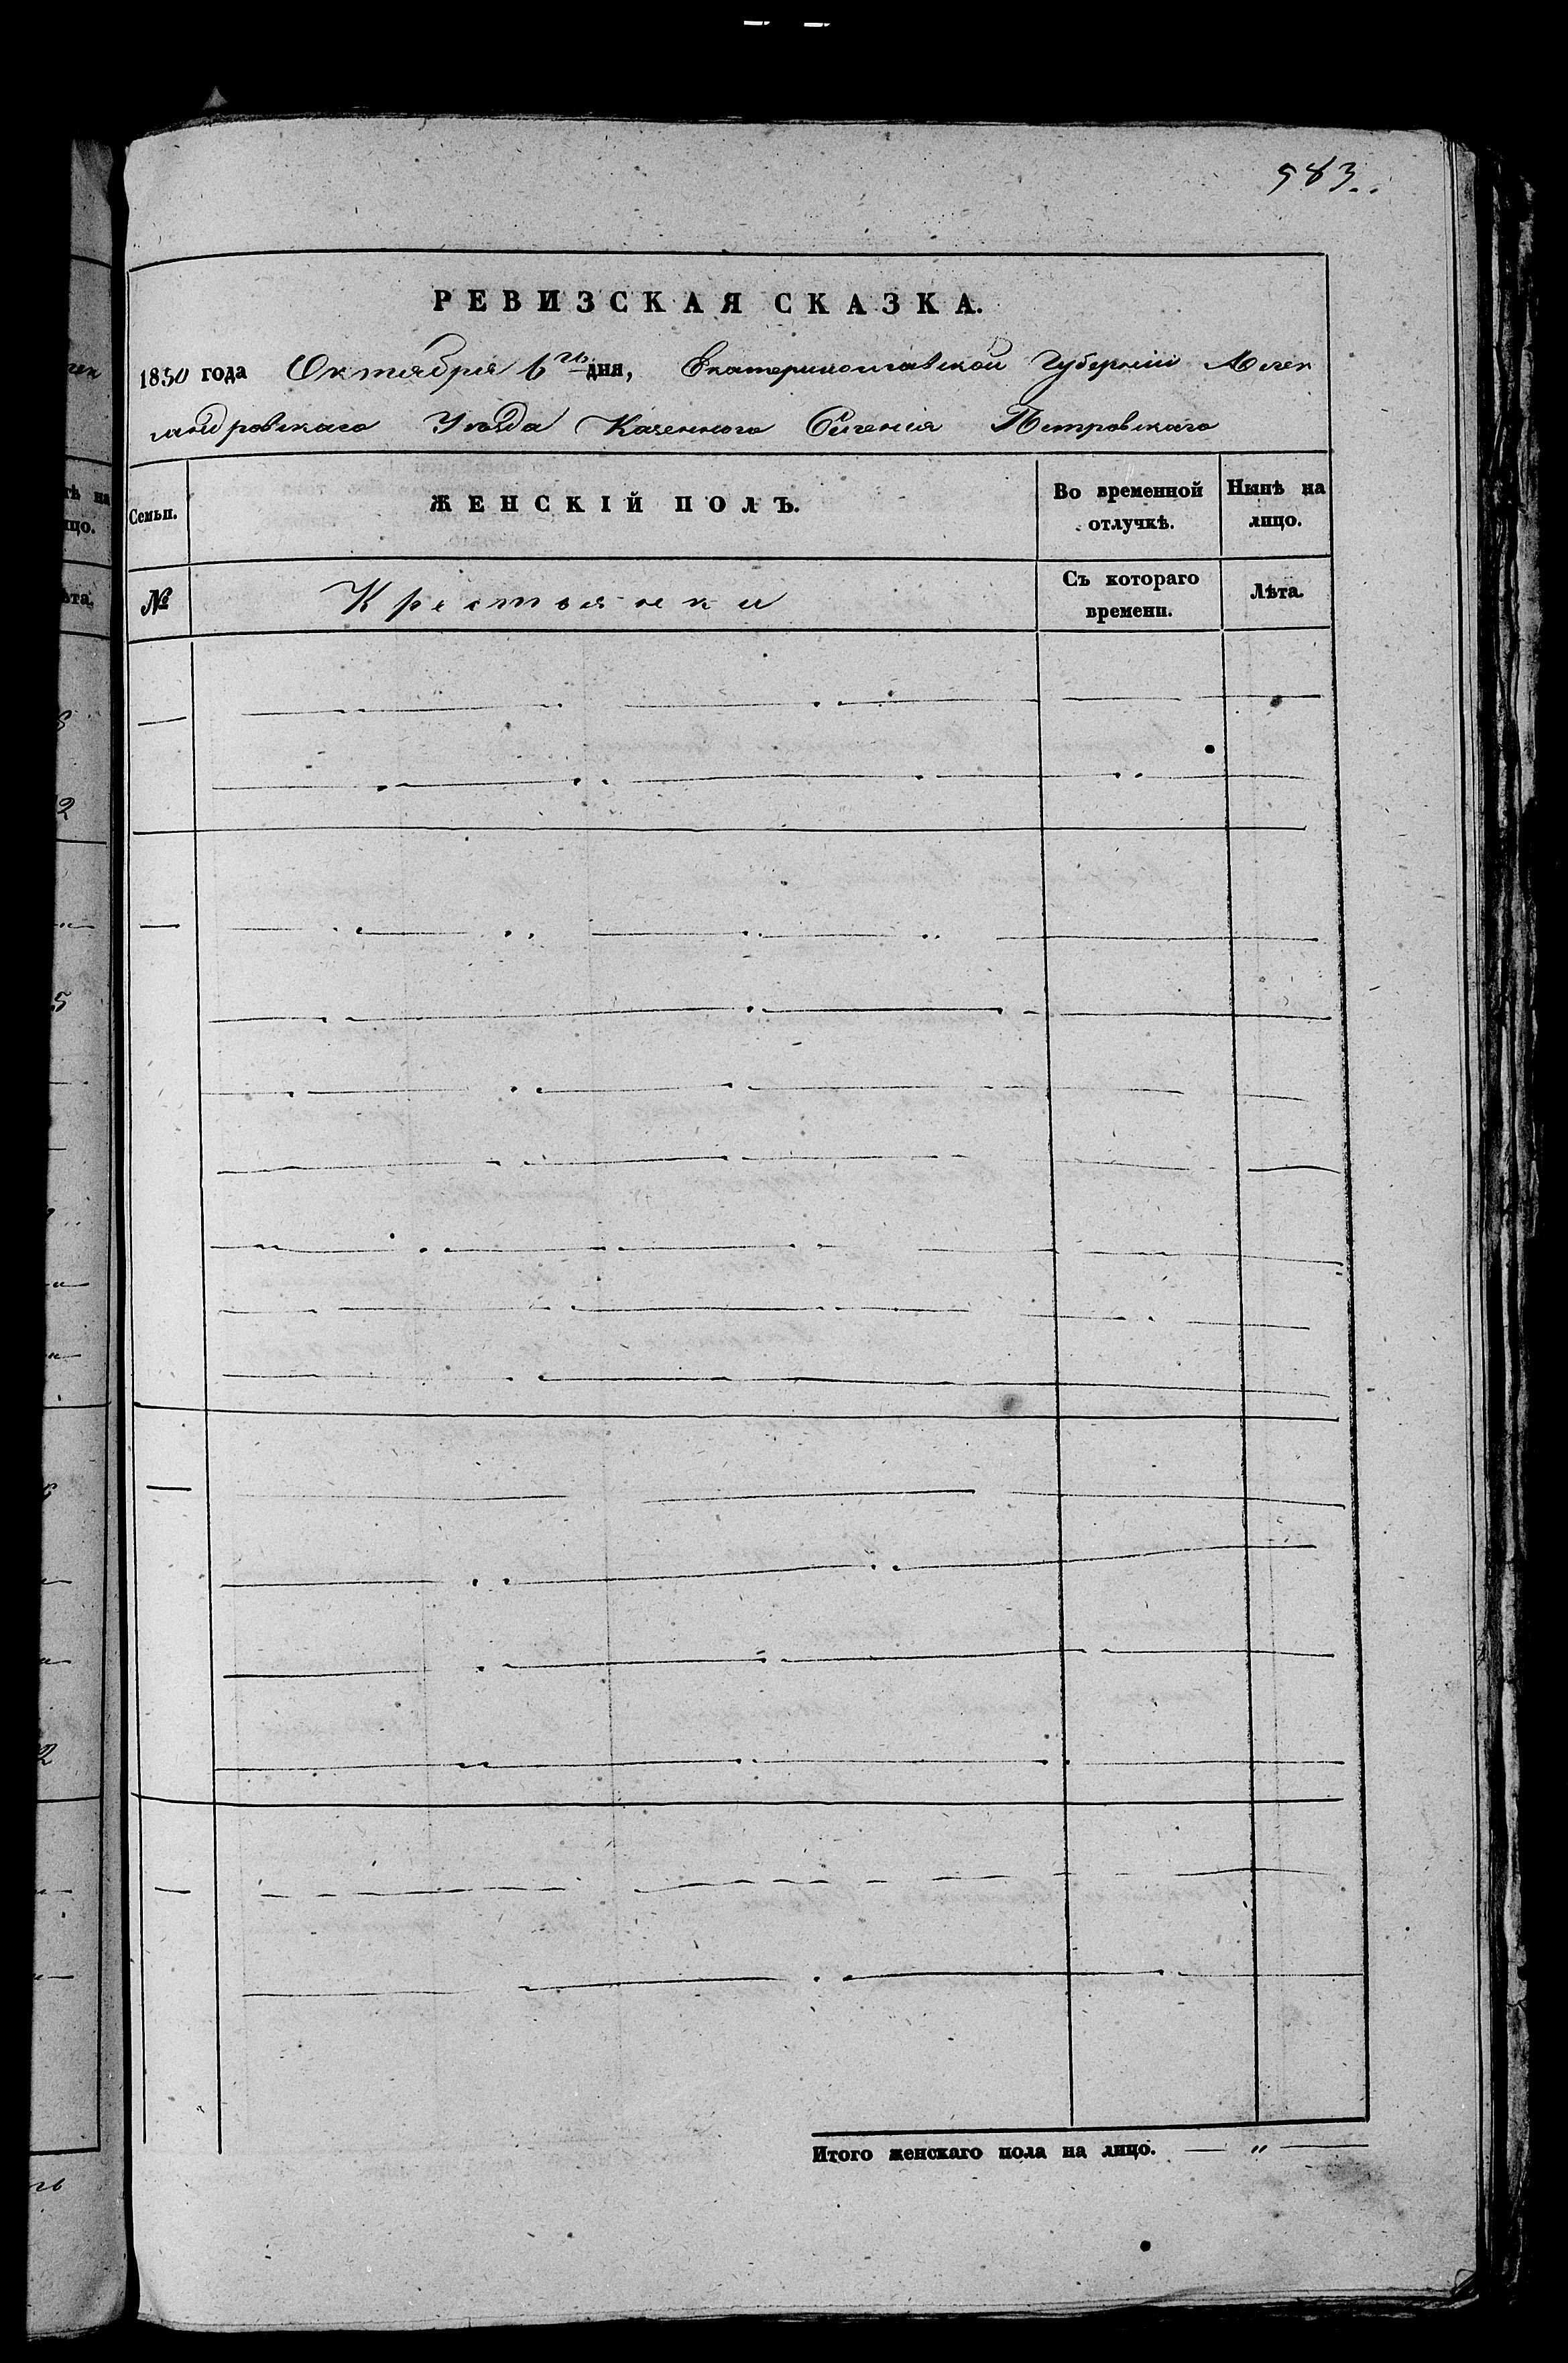 983
РЕВИЗСКАЯ СКАЗКА.
1850 года Октября 6го дня, Екатеринославской Губерніи Алек
сандровскаго Уѣзда Казенного Селенія Петровскаго
Семьи.
ЖЕНСКІЙ ПОЛЪ.
Во временной
отлучкѣ.
Нынѣ на
лицо.
№
Крестьянки
Съ котораго
времени.
Лѣта.
Итого женскаго пола на лицо. — „ —